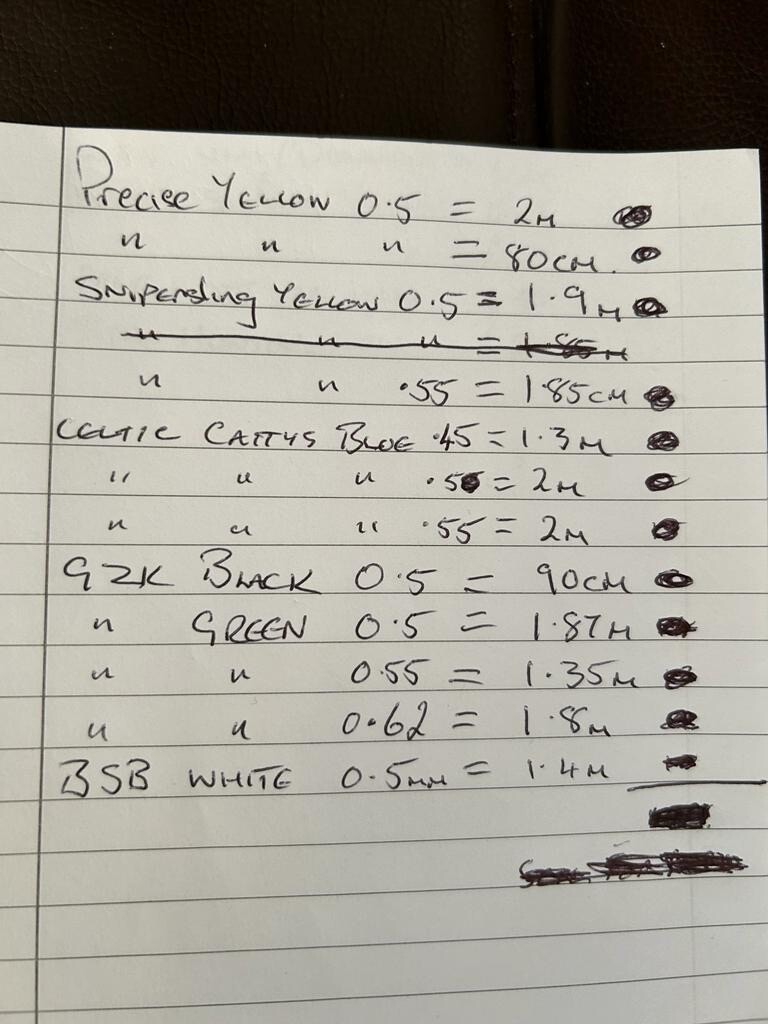 Precise Yellow 0.5 = 2m
" " " = 80cm.
Snipersling Yellow 0.5 = 1.9m
" " " = 1.85m
" " .55 = 1.85cm
Celtic Cattys Blue .45 = 1.3m
" " " .50 = 2m
" " " .55 = 2m
GZK Black 0.5 = 90cm
" GREEN 0.5 = 1.87m
" " 0.55 = 1.35m
" " 0.62 = 1.8m
BSB WHITE 0.5mm = 1.4m